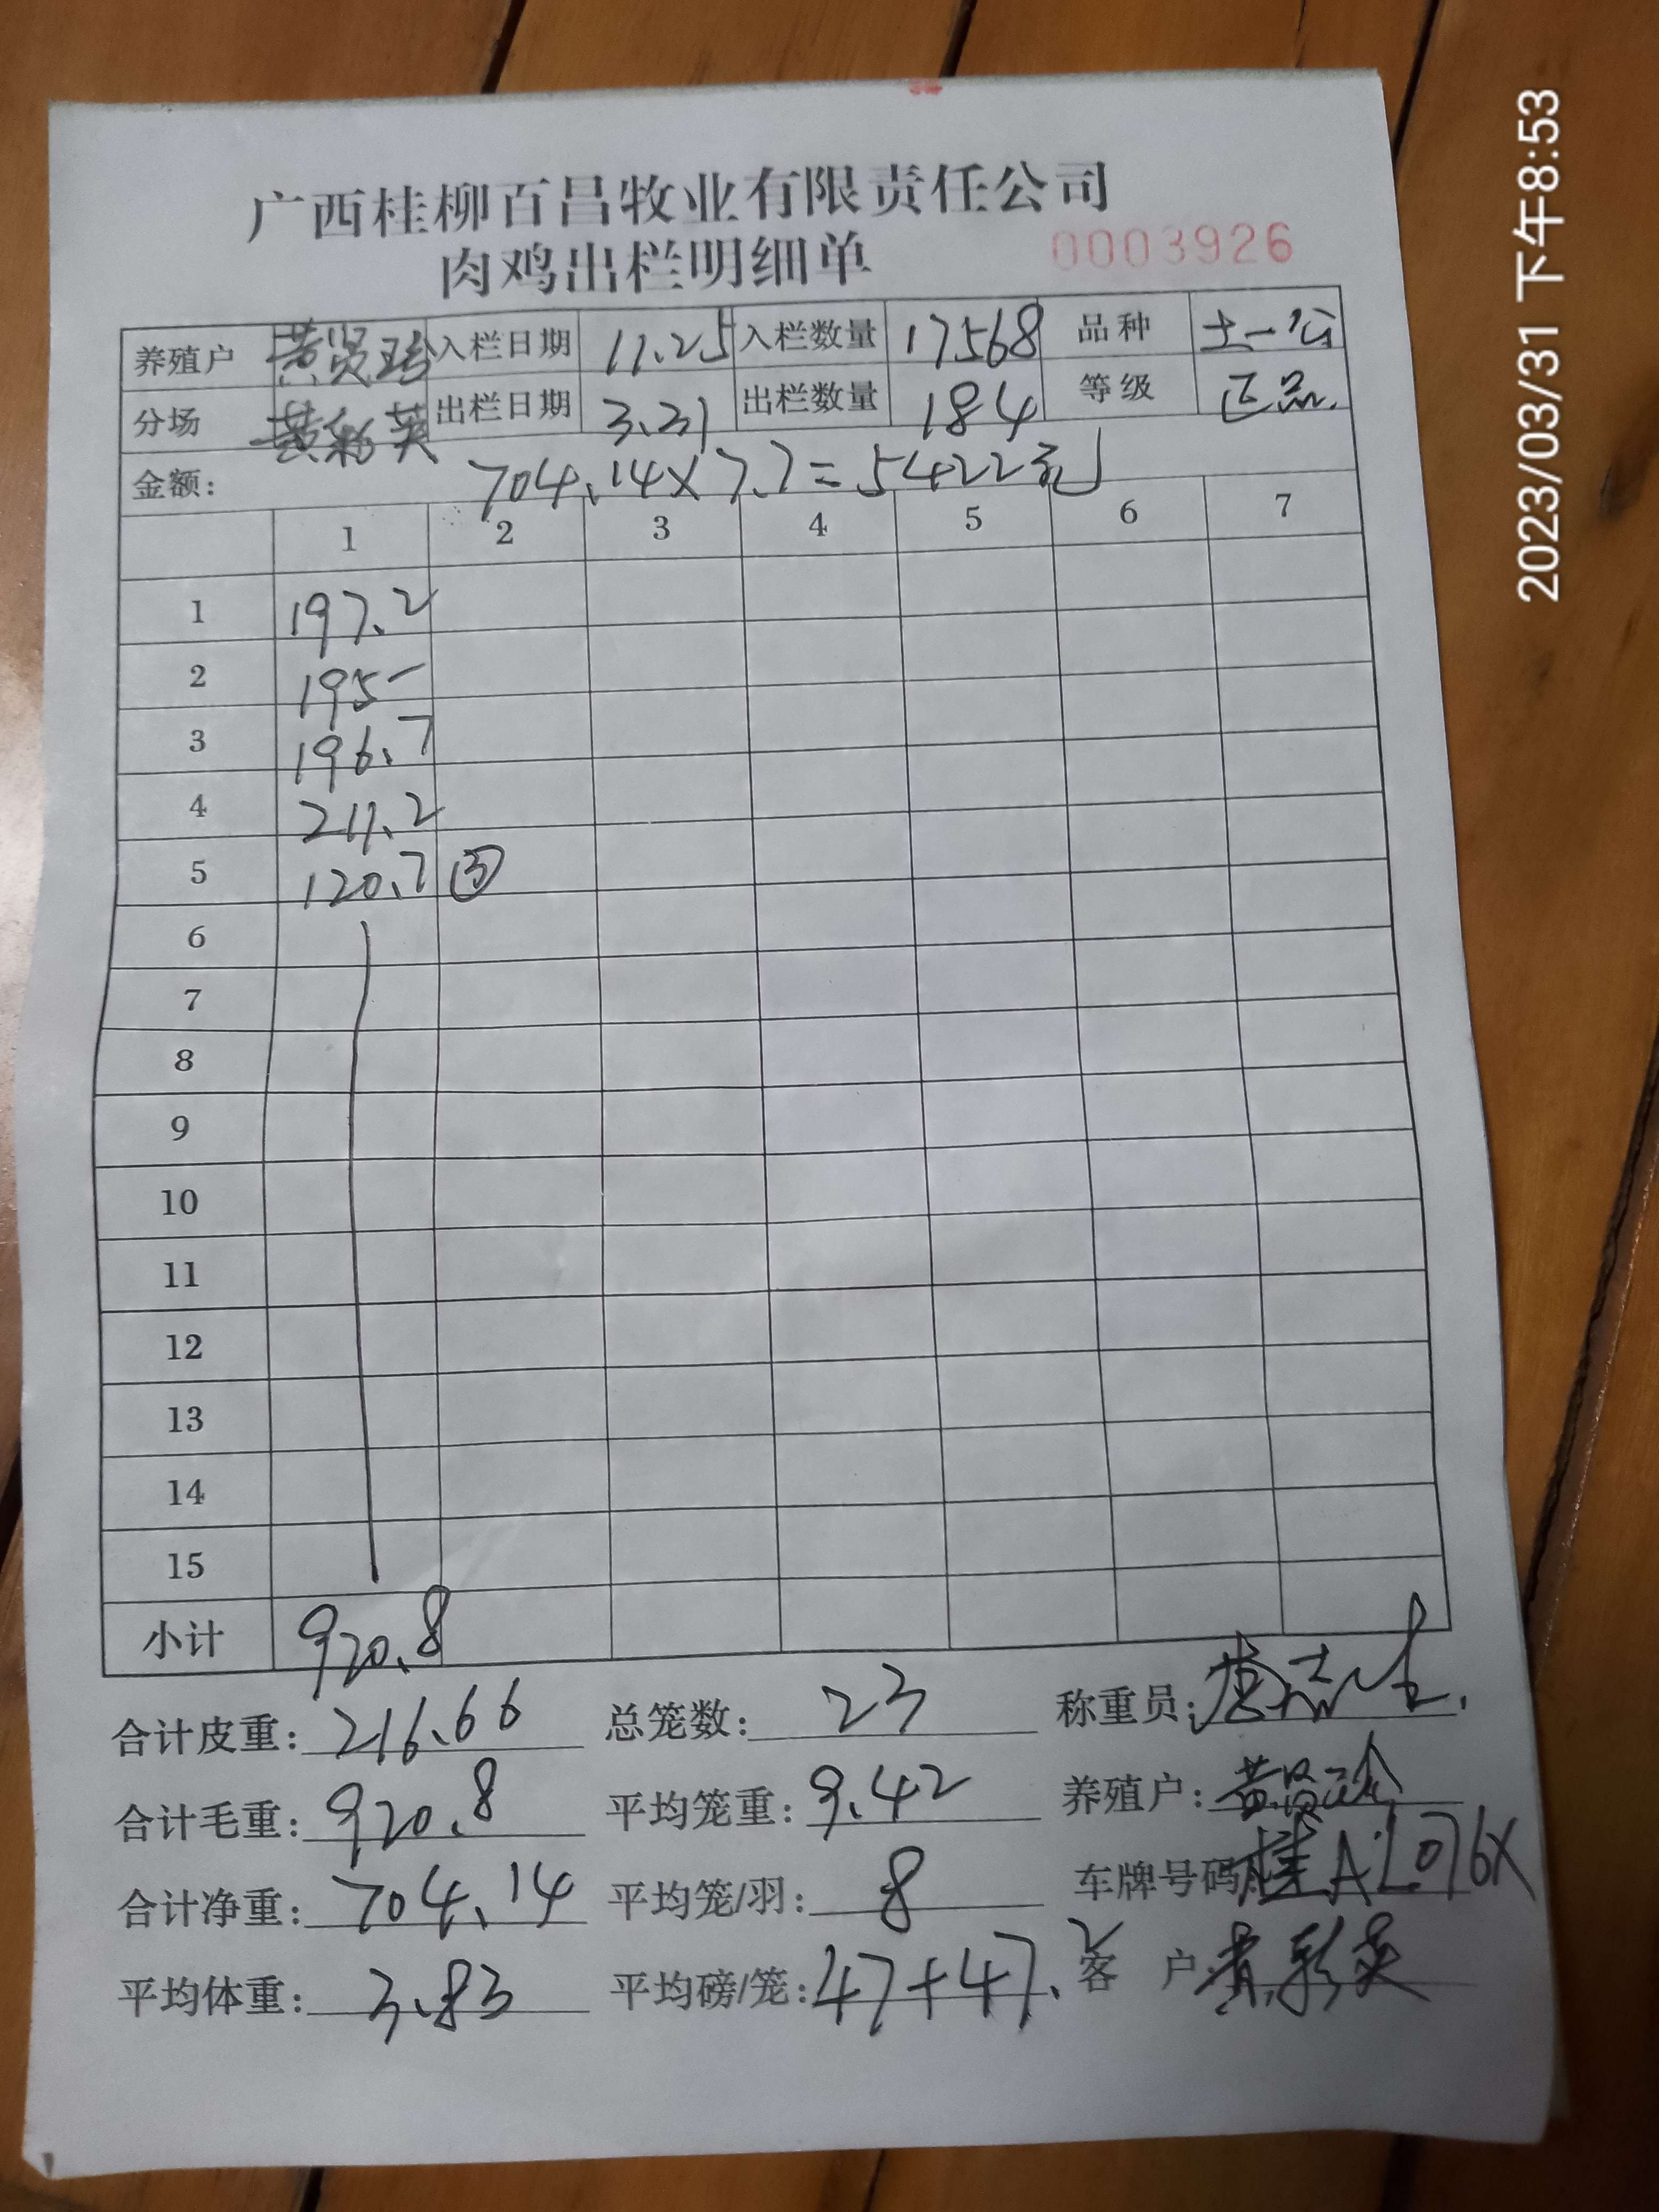 广西桂柳百昌牧业有限责任公司
肉鸡出栏明细单 0003926
养殖户 黄贤珍 入栏日期 11.25 入栏数量 17568 品种 土一公
分场 黄彩英 出栏日期 3.31 出栏数量 184 等级 正品.
金额: 704.14×7.7=5422元
1 2 3 4 5 6 7
1 197.2
2 195-
3 196.7
4 211.2
5 120.7 ③
6
7
8
9
10
11
12
13
14
15
小计 920.8
合计皮重: 216.66 总笼数: 23 称重员:
合计毛重: 920.8 平均笼重: 9.42 养殖户: 黄贤珍
合计净重: 704.14 平均笼/羽: 8 车牌号码: 桂AL076X
平均体重: 3.83 平均磅/笼: 47+47.2 客户: 黄彩英
2023/03/31 下午8:53